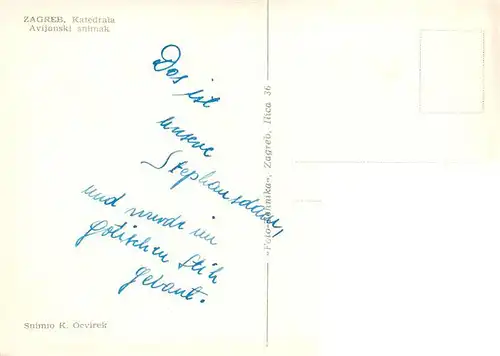 ZAGREB, Katedrala
Avijonski snimak
Das ist
unsere
Stephansdom,
und wurde im
gotischen Stil
gebaut.
Snimio K. Ocvirek
»Foto-tehnika«, Zagreb, Ilica 36